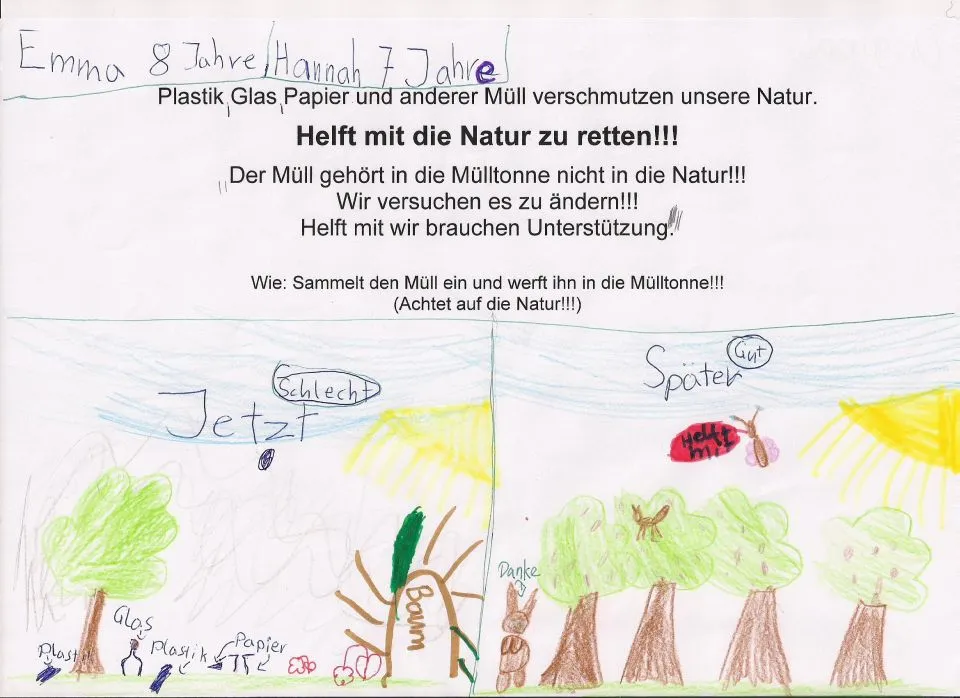 Emma 8 Jahre Hannah 7 Jahre
Plastik, Glas, Papier und anderer Müll verschmutzen unsere Natur.
Helft mit die Natur zu retten!!!
"Der Müll gehört in die Mülltonne nicht in die Natur!!!
Wir versuchen es zu ändern!!!
Helft mit wir brauchen Unterstützung."
Wie: Sammelt den Müll ein und werft ihn in die Mülltonne!!!
(Achtet auf die Natur!!!)
Schlecht
Jetzt
Gut
Später
Helft
mit
Danke
Baum
Glas
Plastik
Plastik
Papier